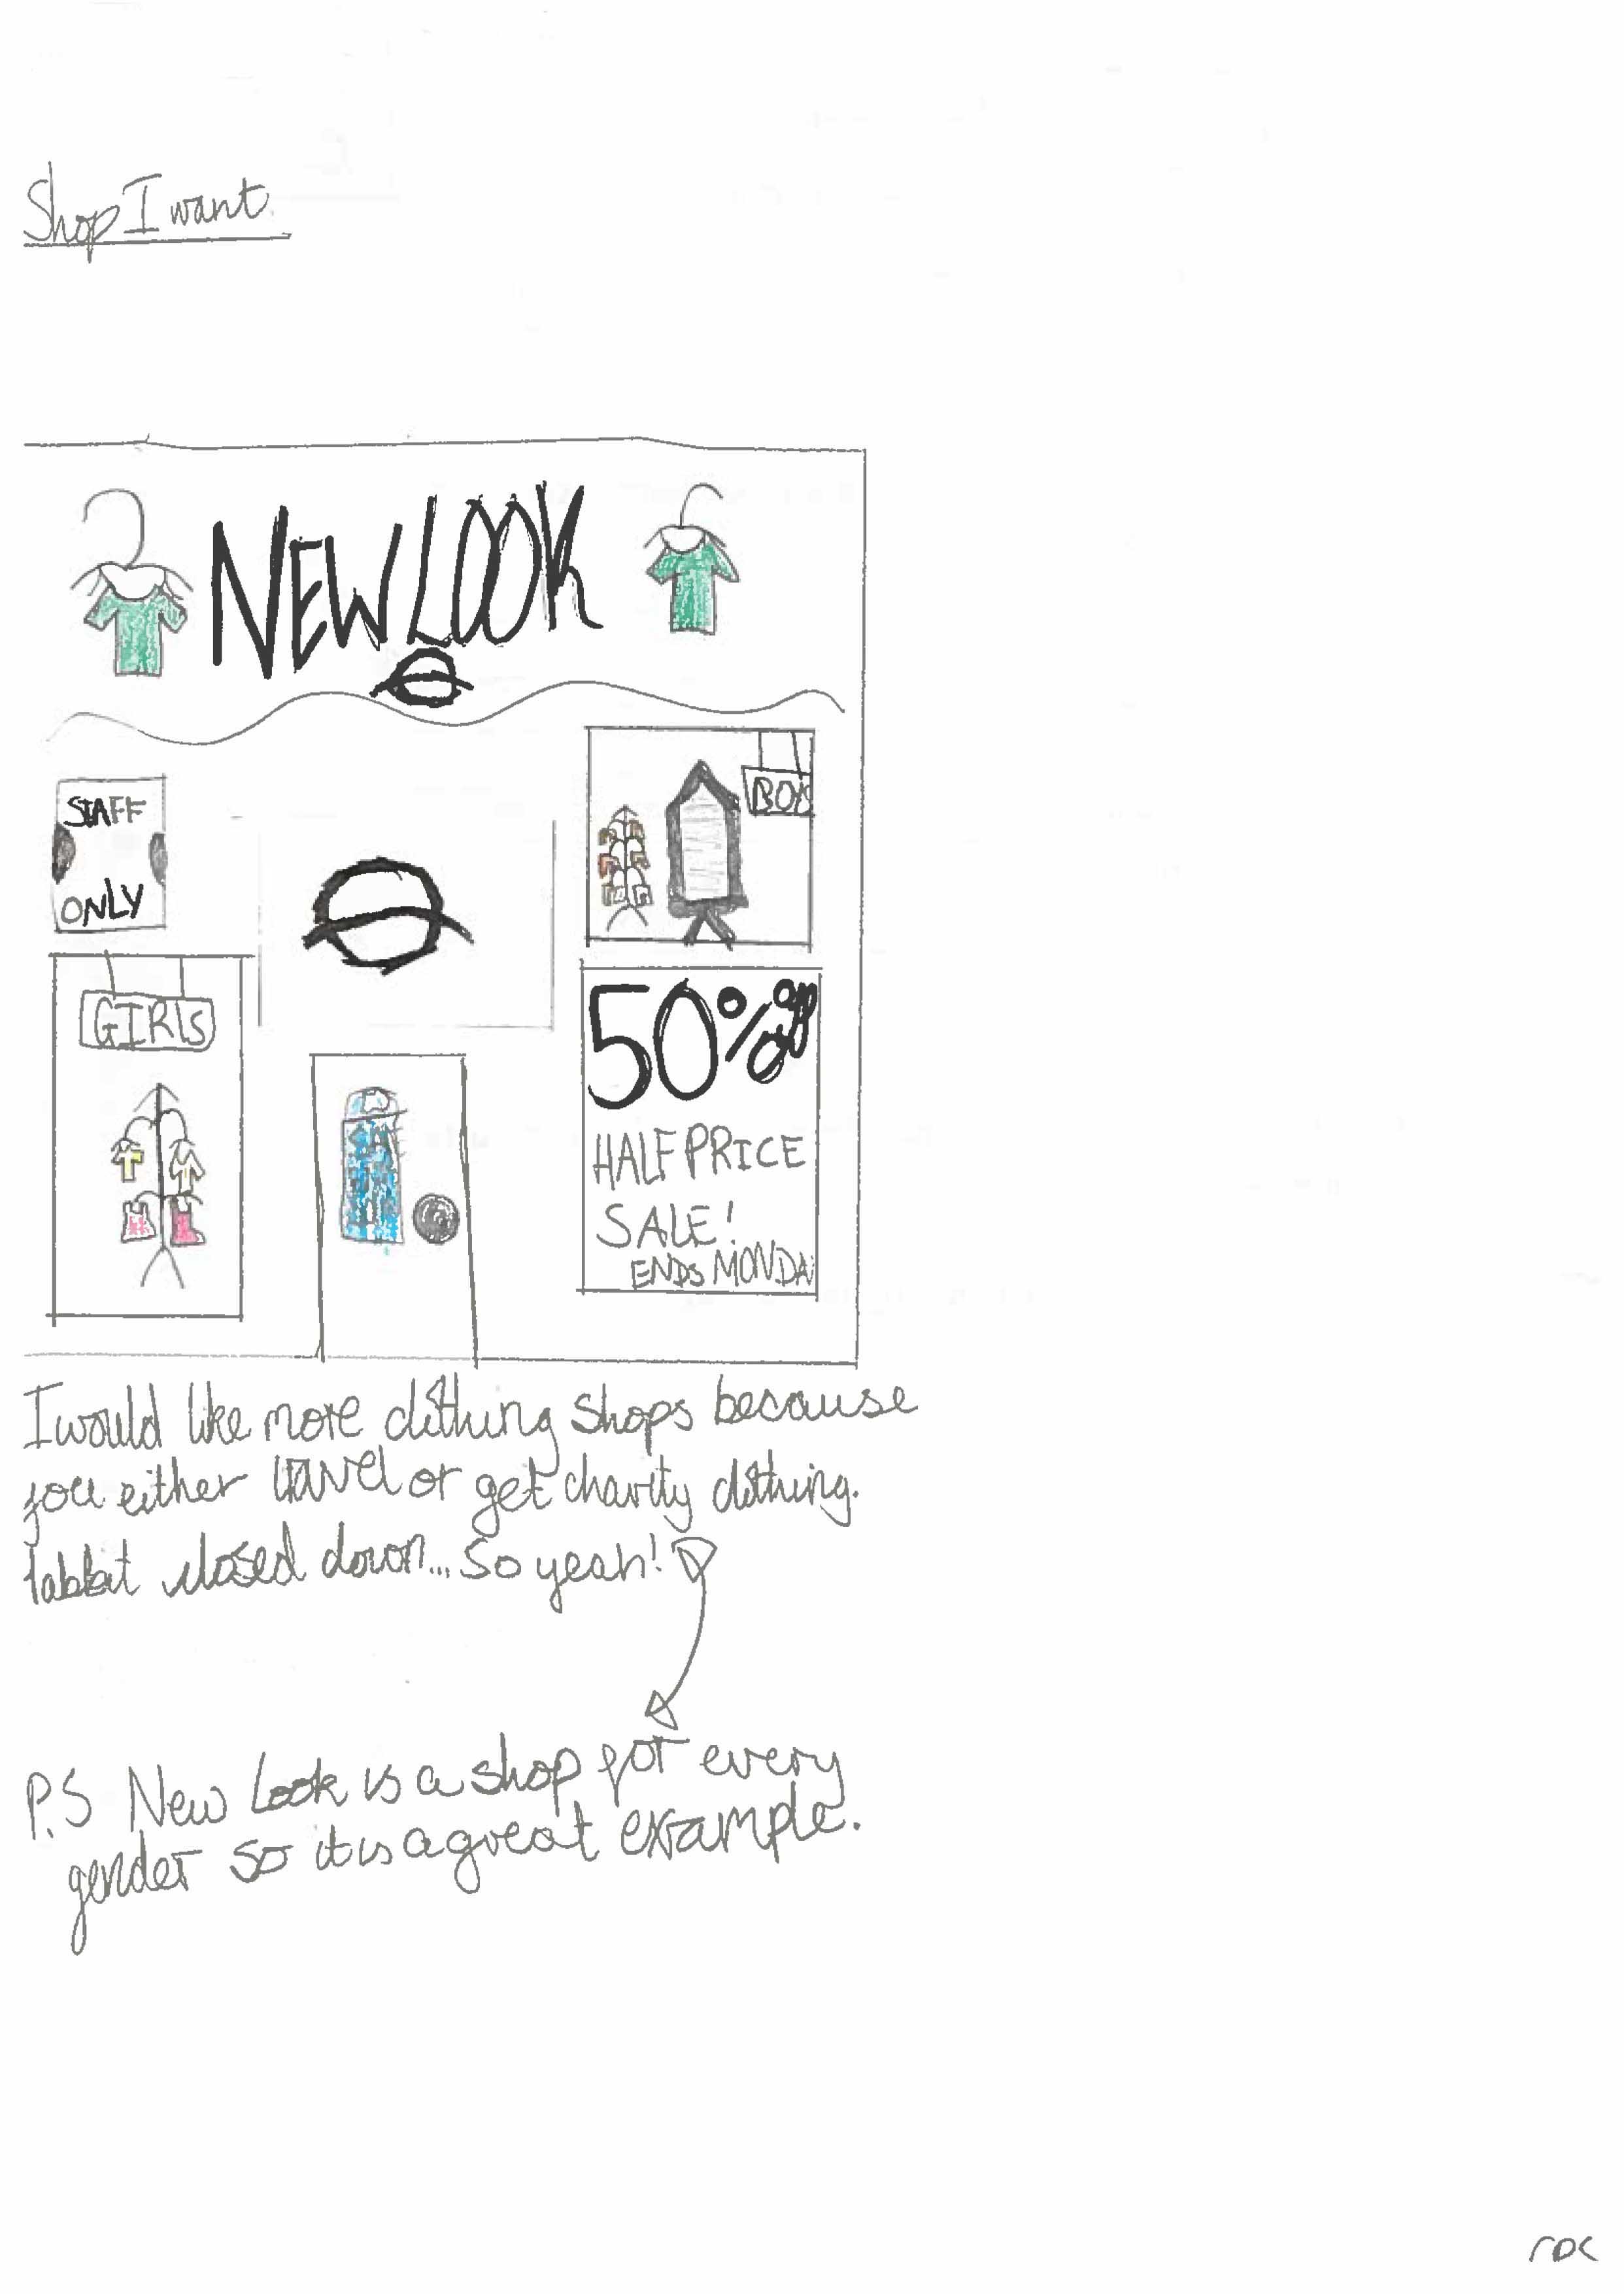 Shop I want
NEW LOOK
STAFF
ONLY
BOY
GIRLS
50% off
HALF PRICE
SALE!
ENDS MONDA
I would like more clothing shops because
you either travel or get charity clothing.
closed down... so yeah!
P.S New Look is a shop for every
gender so it is a great example.